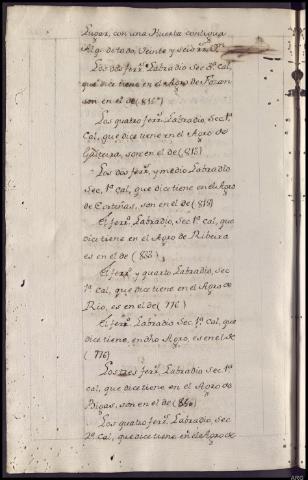 Lugar, con una Huerta contigua
Los dos ferr.s Labradio Sec.o 3.a Cal,
que dice tiene en el Agro de Foran
son en el de (815)
Los quatro ferr.s Labradio, Sec.o 1.a
Cal, que dice tiene en el Agro de
son en el de (815)
Los dos ferr.s y medio Labradio
Sec.o 1.a Cal, que dice tiene en el Agro
de Cortiñas, son en el de (818)
El ferr.o Labradio, Sec.o 1.a Cal, que
dice tiene en el Agro de Ribeira
es en el de
El ferr.o y quarto Labradio, Sec.o
1.a Cal, que dice tiene en el Agro de
Rio, es en el de (776)
El ferr.o Labradio Sec.o 1.a Cal, que
dice, tiene, en dho Agro, es en el de
(776)
Los tres ferr.s Labradio Sec.o 1.a
Cal, que dice tiene en el Agro de
Bigas, son en el de
Los quatro ferr.s Labradio, Sec.o
2.a Cal, que dice tiene en el Agro de